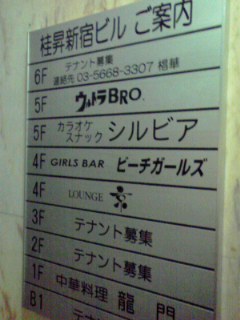 桂昇新宿ビル ご案内
6F テナント募集
連絡先 03-5668-3307 格華
5F ウルトラBRO.
5F カラオケスナック シルビア
4F GIRLS BAR ビーチガールズ
4F LOUNGE
3F テナント募集
2F テナント募集
1F 中華料理 龍門
B1 テナント